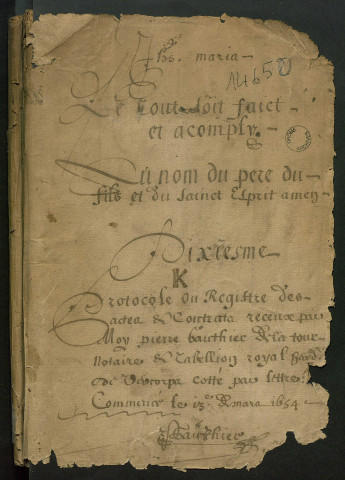 Jhs. maria
14650
Le tout soit faict
et acomply.
Au nom du pere du
fils et du sainct Esprit amen
Dixiesme
K
Protocole ou Registre des
actes & Contratz receux par
Moy pierre Gauthier de la tour
Notaire & Tabellion royal
de cotté par lettre
Commencé le 13e de mars 1654
Gauthier